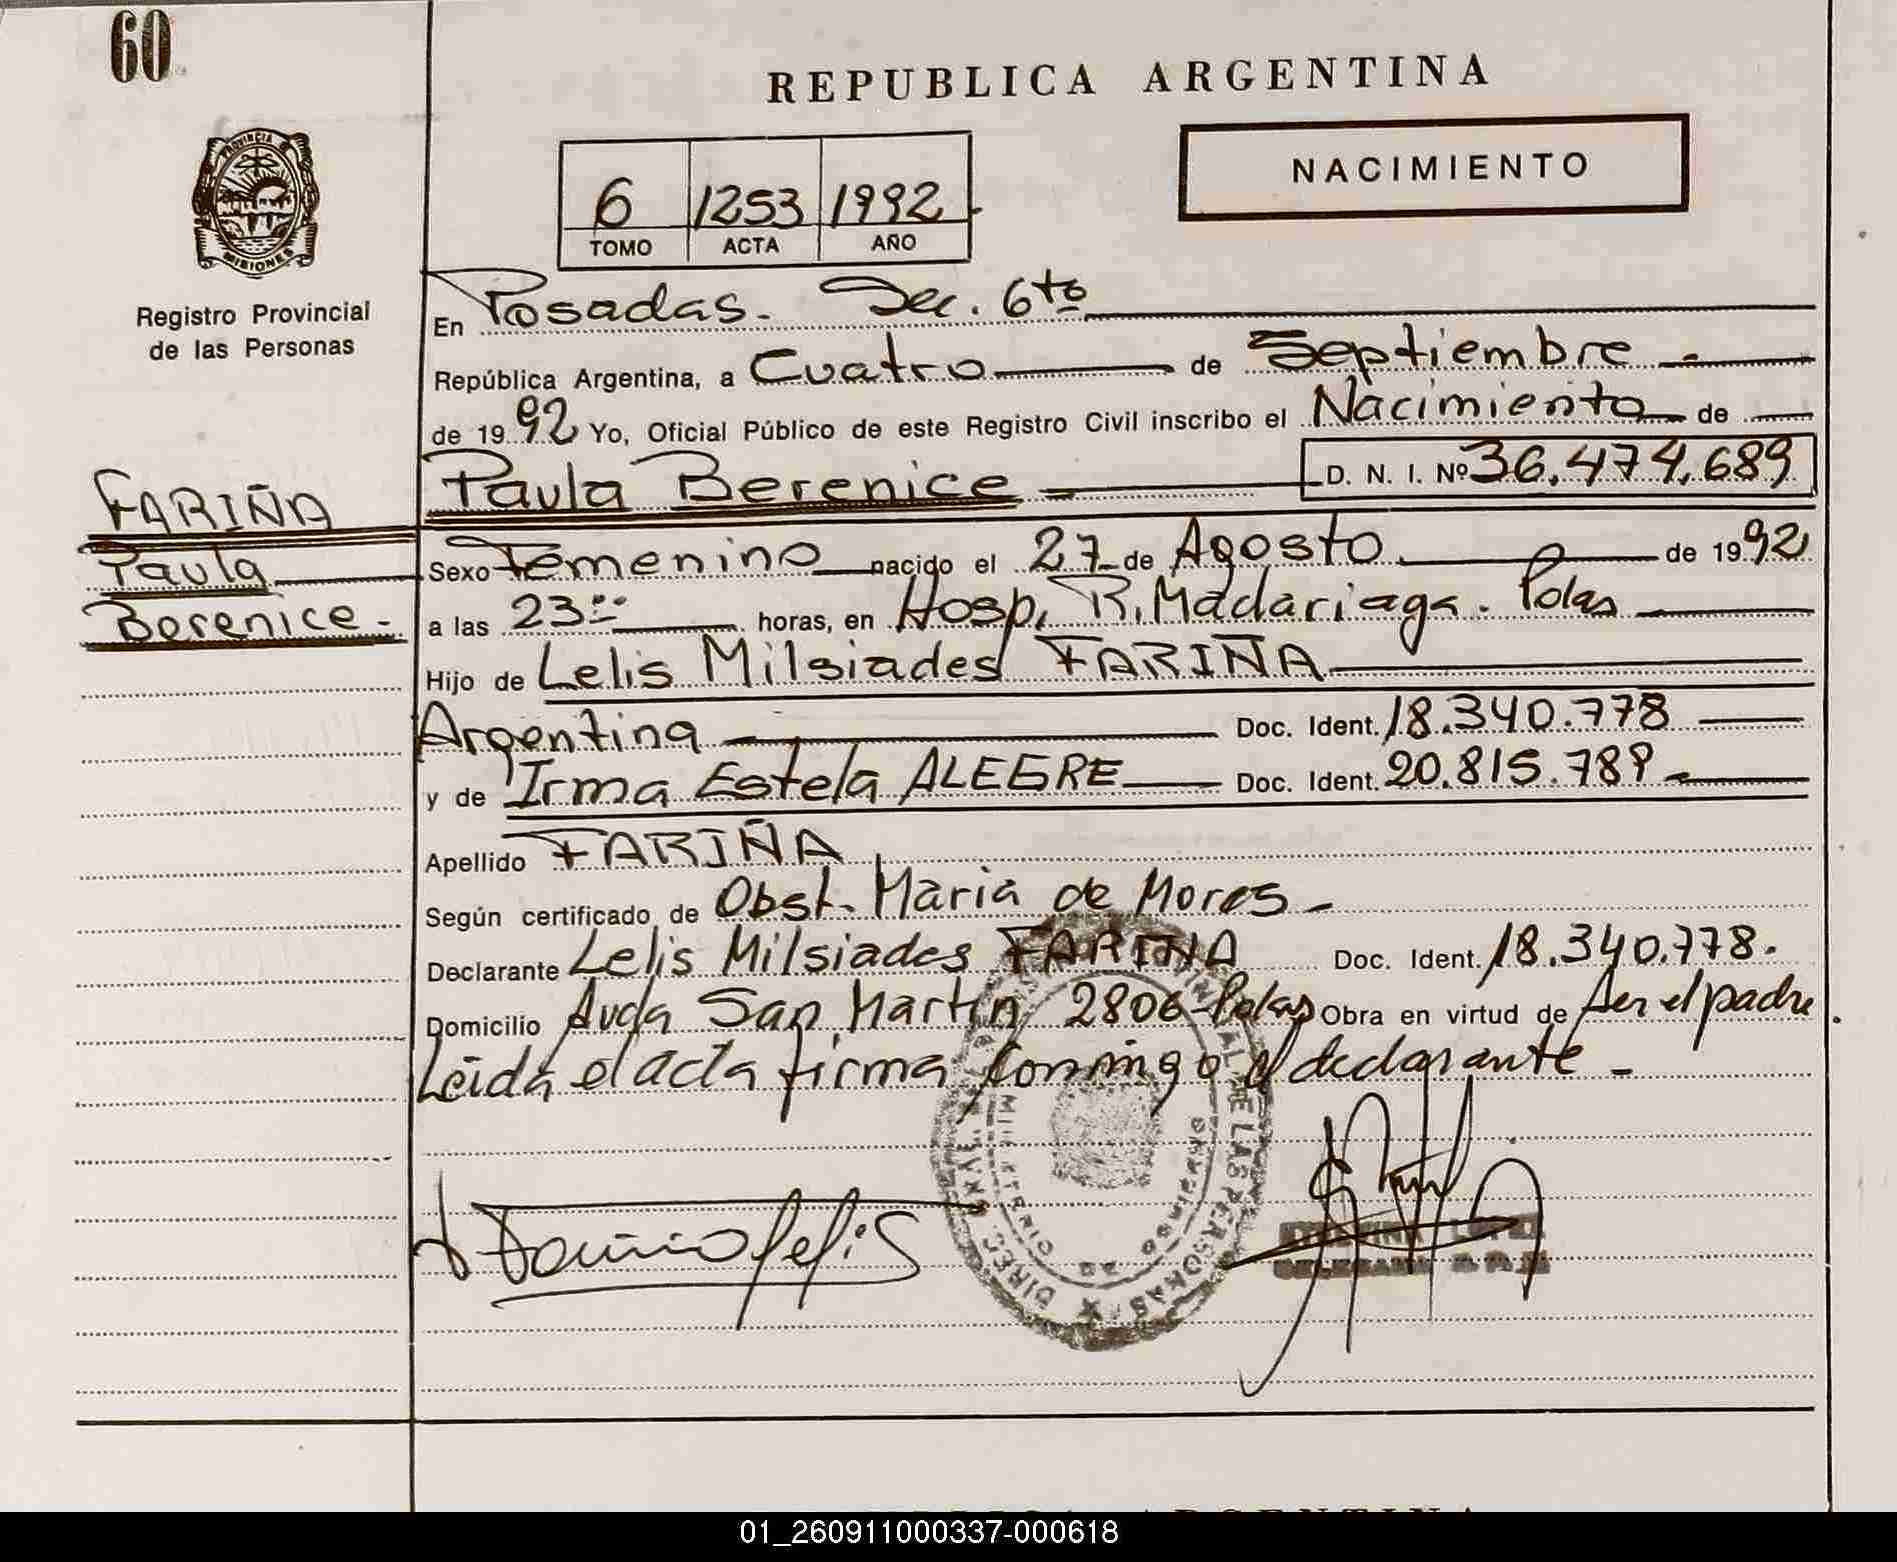 60
REPUBLICA ARGENTINA
PROVINCIA
MISIONES
NACIMIENTO
6 1253 1992
TOMO ACTA AÑO
Registro Provincial
de las Personas
En Posadas. Sec. 6to
República Argentina, a Cuatro de Septiembre
de 1992 Yo, Oficial Público de este Registro Civil inscribo el Nacimiento de
Paula Berenice D. N. I. Nº 36.474.689
FARIÑA
Paula
Berenice.-
Sexo Femenino nacido el 27 de Agosto de 1992
a las 23:00 horas, en Hosp. R. Madariaga. Pdas
Hijo de Lelis Milsiades FARIÑA
Argentina Doc. Ident. 18.340.778
y de Irma Estela ALEGRE Doc. Ident. 20.815.789
Apellido FARIÑA
Según certificado de Obst. Maria de Mores -
Declarante Lelis Milsiades FARIÑA Doc. Ident. 18.340.778.
Domicilio Avda San Martin 2806 - Pdas Obra en virtud de ser el padre
Leida el acta firma conmigo el declarante -
Fariña Lelis
DE LAS PERSONAS
DIREC.
01_260911000337-000618